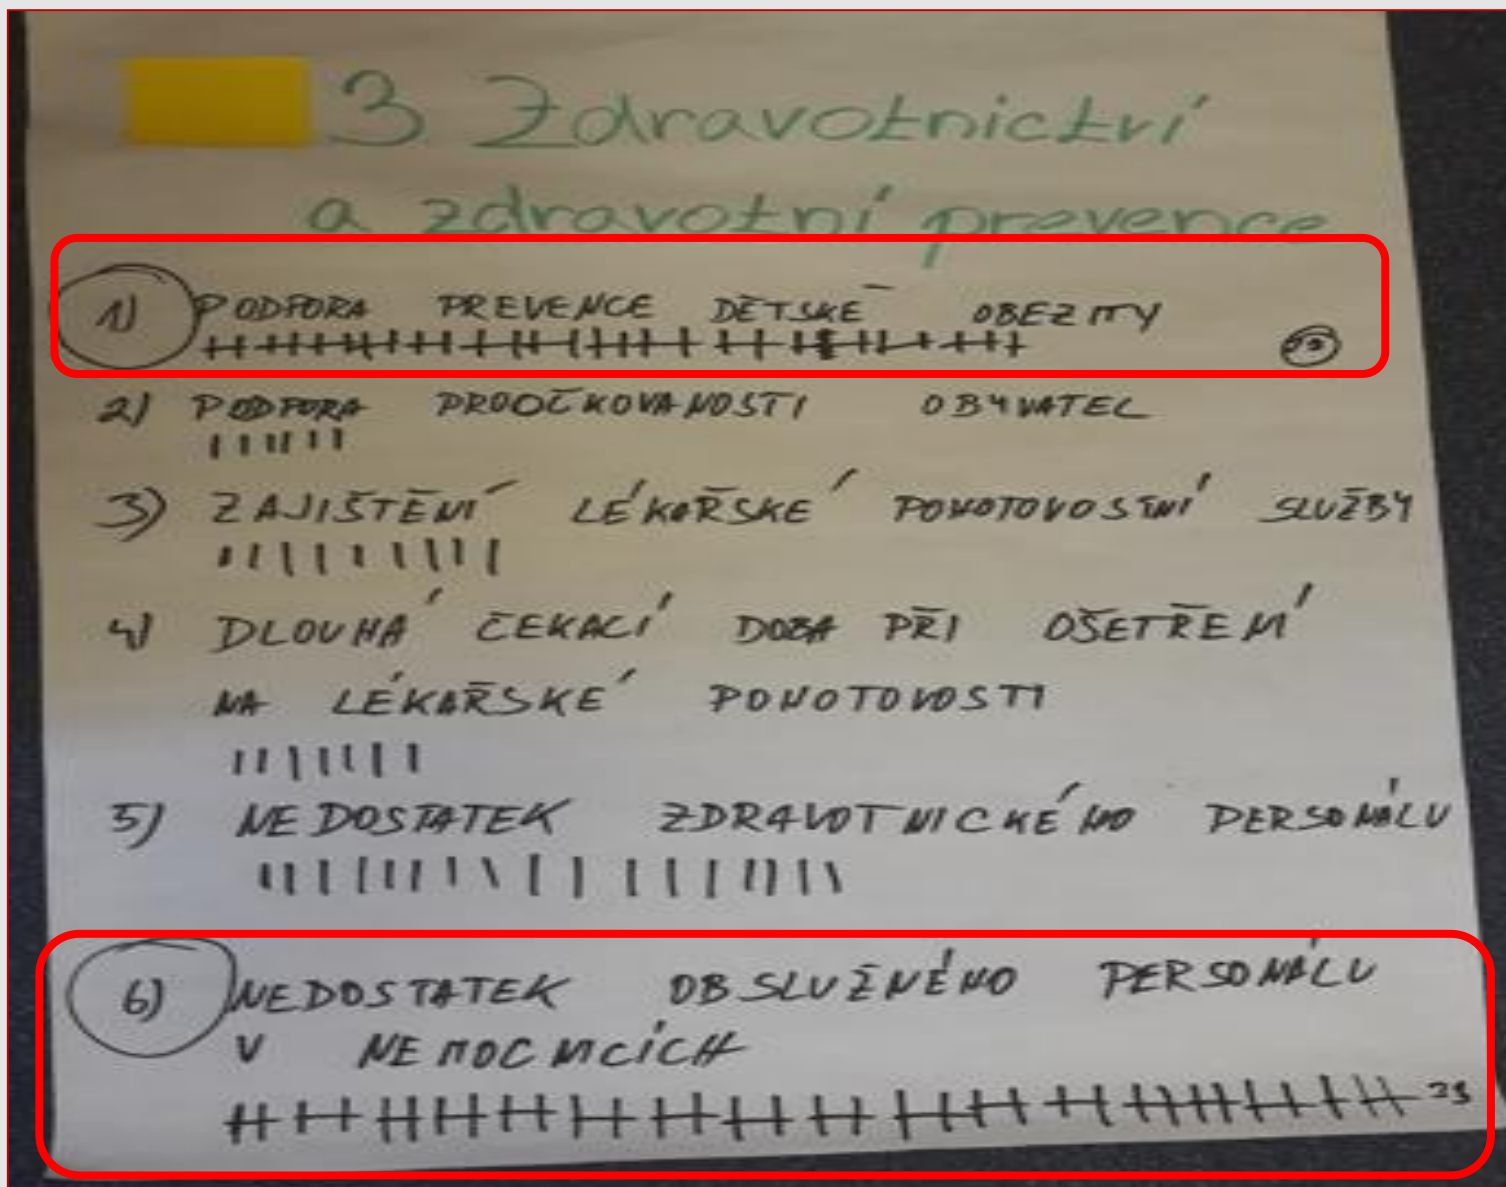 3. Zdravotnictví
a zdravotní prevence
1) PODPORA PREVENCE DĚTSKÉ OBEZITY
2) PODPORA PROOČKOVANOSTI OBYVATEL
3) ZAJIŠTĚNÍ LÉKAŘSKÉ POHOTOVOSTNÍ SLUŽBY
4) DLOUHÁ ČEKACÍ DOBA PŘI OŠETŘENÍ
NA LÉKAŘSKÉ POHOTOVOSTI
5) NEDOSTATEK ZDRAVOTNICKÉHO PERSONÁLU
6) NEDOSTATEK OBSLUŽNÉHO PERSONÁLU
V NEMOCNICÍCH